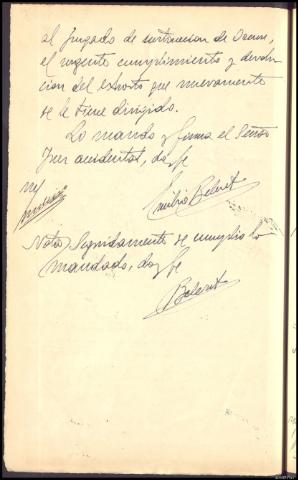 al Juzgado de instruccion de Osuna,
el urgente cumplimiento y devolu-
cion del exhorto que nuevamente
se le tiene dirigido.
Lo mando y firma el Señor
Juez accidental, doy fe
Emilio Beleret
Nota) Seguidamente se cumplio lo
mandado, doy fe
Beleret